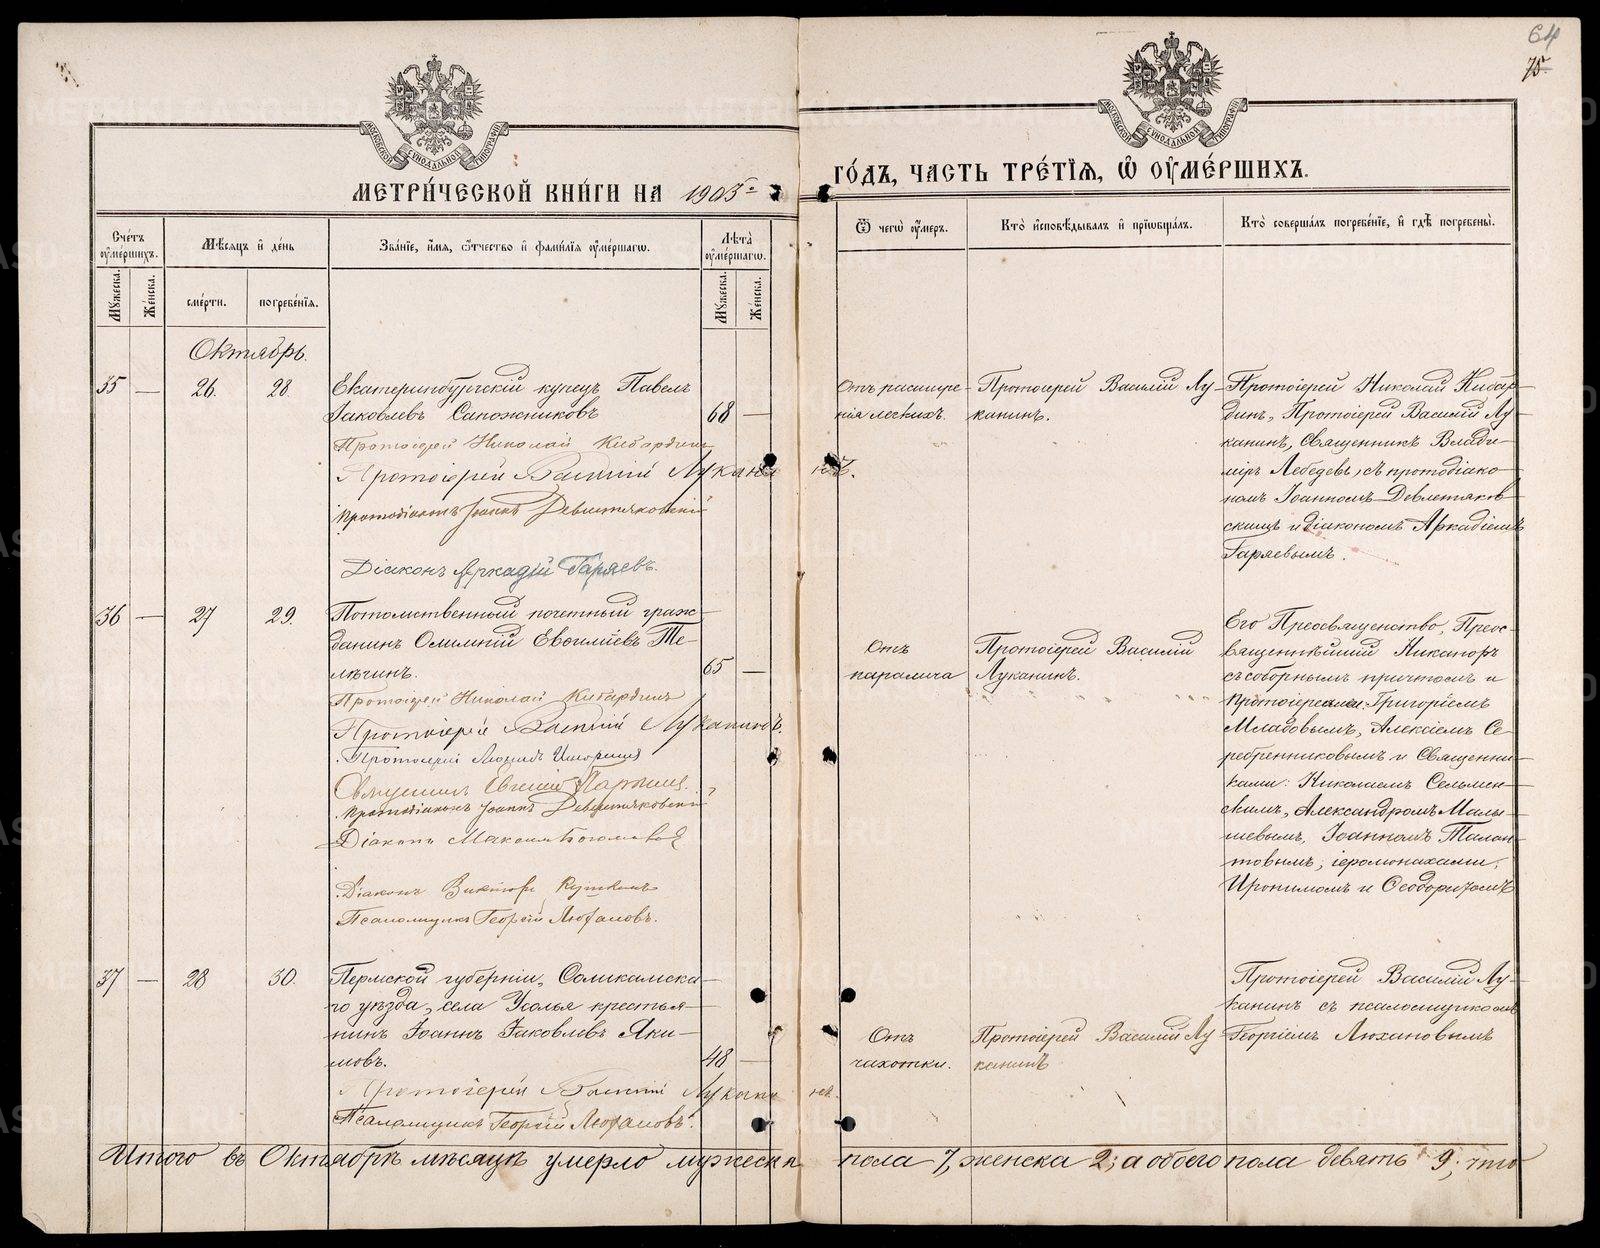 64
75.
МОСКОВСКОЙ СѴНОДАЛЬНОЙ ТИПОГРАФІИ
МОСКОВСКОЙ СѴНОДАЛЬНОЙ ТИПОГРАФІИ
МЕТРИ́ЧЕСКОЙ КНИ́ГИ НА 1905 го
ГО́ДЪ, ЧАСТЬ ТРЕ́ТІѦ, Ѽ ОУ҆МЕ́РШИХЪ.
Сче́тъ оу҆ме́ршихъ.
Мѣ́сяцъ и҆ де́нь
Зва́нїе, и҆́мя, ѻ҆́тчество и҆ фами́лїя оу҆ме́ршагѡ.
Лѣта̀ оу҆ме́ршагѡ.
Ѿ чегѡ̀ оу҆́меръ.
Кто̀ и҆сповѣ́дывалъ и҆ прїѡбща́лъ.
Кто̀ соверша́лъ погребе́нїе, и҆ гдѣ̀ погребены̀.
Мꙋ́жеска.
Же́нска.
сме́рти.
погребе́нїя.
Мꙋ́жеска.
Же́нска.
Октябрь.
35 — 26. 28.
Екатеринбургскій купецъ Павелъ
Іаковлевъ Сапожниковъ
68 —
Протоіерей Николай Кибардинъ
Протоіерей Василій Луканинъ.
Протодіаконъ Іоаннъ Девлетяковскій
Діаконъ Аркадій Гаряевъ.
Отъ расшире-
нія легкихъ.
Протоіерей Василій Лу-
канинъ.
Протоіерей Николай Кибар-
динъ, Протоіерей Василій Лу-
канинъ, Священникъ Влади-
міръ Лебедевъ, съ протодіако-
номъ Іоанномъ Девлетяков-
скимъ и діакономъ Аркадіемъ
Гаряевымъ.
36 — 27 29.
Потомственный почетный граж-
данинъ Олимпій Евсиліевъ Те-
лѣчинъ.
65 —
Протоіерей Николай Кибардинъ
Протоіерей Василій Луканинъ.
Протоіерей
Священникъ Евгеній
Протодіаконъ Іоаннъ Девлетяковскій
Діаконъ
Діаконъ Викторъ
Псаломщикъ Георгій Люхановъ.
Отъ
паралича
Протоіерей Василій
Луканинъ.
Его Преосвященство, Преос-
вященнѣйшій Никаноръ
съ соборнымъ причтомъ и
Протоіереями: Григоріемъ
Младовымъ, Алексіемъ Се-
ребренниковымъ и Священни-
ками: Николаемъ Сельмен-
скимъ, Александромъ Малы-
шевымъ, Іоанномъ Талан-
товымъ, іеромонахами,
Иронимомъ и Ѳеодоритомъ
37 — 28 30.
Пермской губерніи, Соликамска-
го уѣзда, села Усолья крестья-
нинъ Іоаннъ Іаковлевъ Яки-
мовъ.
48 —
Протоіерей Василій Луканинъ.
Псаломщикъ Георгій Люхановъ.
Отъ
чахотки.
Протоіерей Василій Лу-
канинъ
Протоіерей Василій Лу-
канинъ съ псаломщикомъ
Георгіемъ Люхановымъ
Итого въ Октябрѣ мѣсяцѣ умерло мужеска пола 7, женска 2; а обоего пола девять 9; что